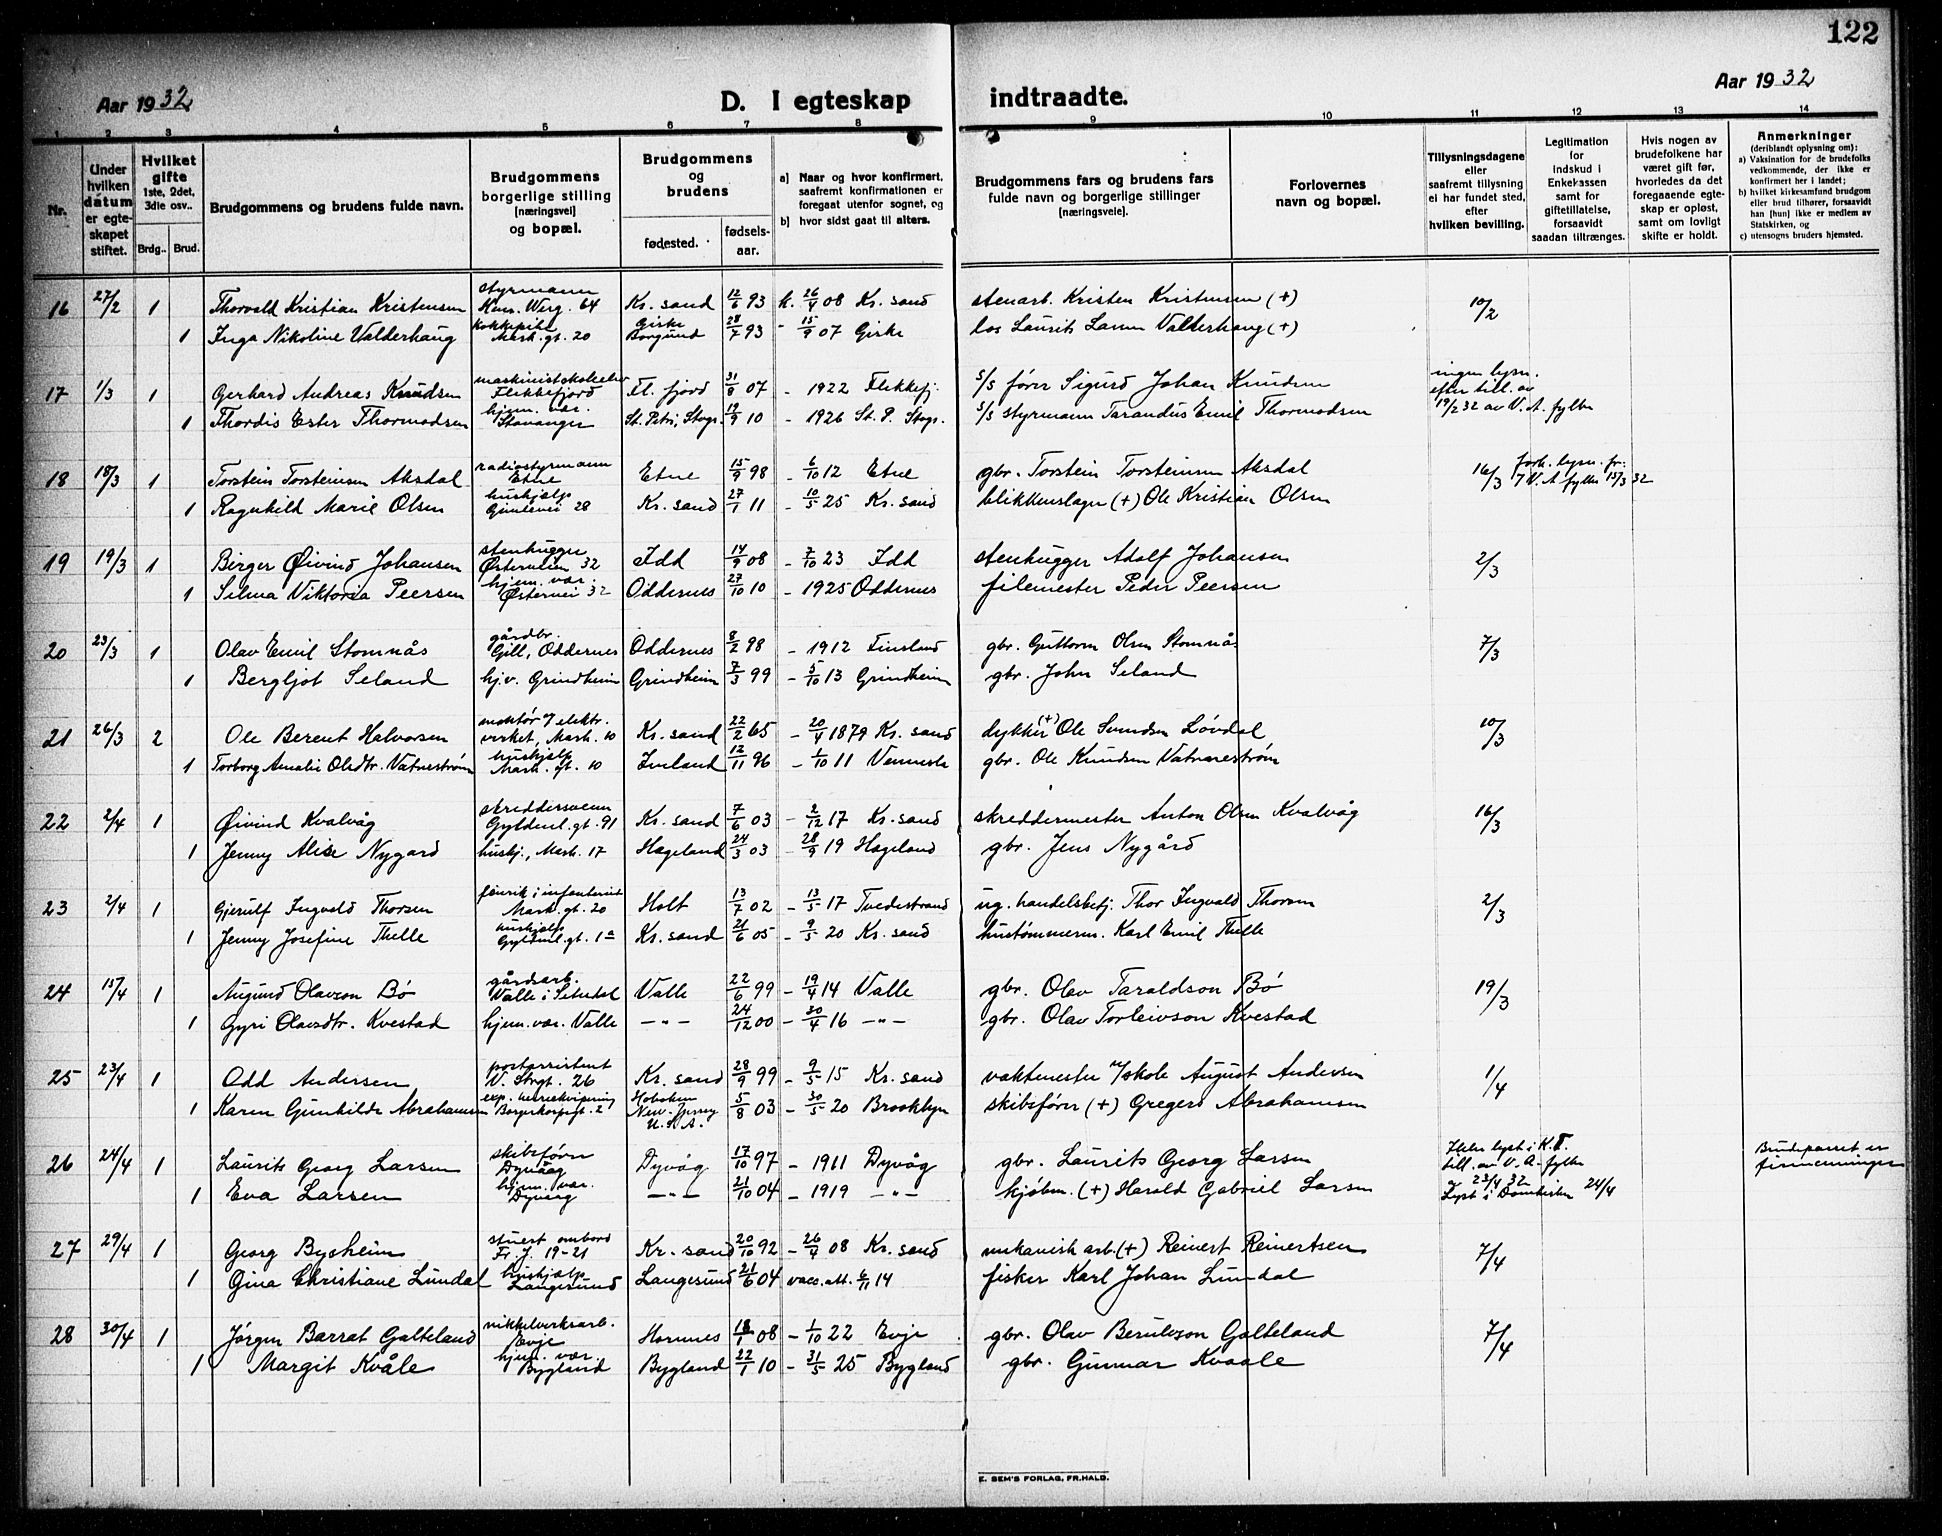 122
Aar 1932
D. I egteskap indtraadte.
Aar 1932
1 2 3 4 5 6 7 8 9 10 11 12 13 14
Nr.
Under hvilken datum er egteskapet stiftet.
Hvilket gifte 1ste, 2det, 3die osv..
Brdg.. Brud.
Brudgommens og brudens fulde navn.
Brudgommens borgerlige stilling [næringsvei] og bopæl.
Brudgommens og brudens
fødested.
fødselsaar.
a) Naar og hvor konfirmert, saafremt konfirmationen er foregaat utenfor sognet, og
b) hvor sidst gaat til alters.
Brudgommens fars og brudens fars fulde navn og borgerlige stillinger [næringsveie].
Forlovernes navn og bopæl.
Tillysningsdagene eller saafremt tillysning ei har fundet sted, efter hvilken bevilling.
Legitimation for indskud i Enkekassen samt for giftetillatelse, forsaavidt saadan tiltrænges.
Hvis nogen av brudefolkene har været gift før, hvorledes da det foregaaende egteskap er opløst, samt om lovligt skifte er holdt.
Anmerkninger (deriblandt oplysning om):
a) Vaksination for de brudefolks vedkommende, der ikke er konfirmert her i landet;
b) hvilket kirkesamfund brudgom eller brud tilhører, forsaavidt han [hun] ikke er medlem av Statskirken, og
c) utensogns bruders hjemsted.
16 27/2 1 Thorvald Kristian Kristensen styrmann Henr. Werg. 64 Kr. sand 12/6 93 k. 26/4 08 Kr. sand stenarb. Kristen Kristensen (+) 10/2
1 Inga Nikoline Valderhaug kokkepike Mark. gt. 20 Giske Borgund 28/7 93 - 15/9 07 Giske los Laurits Valderhaug (+)
17 1/3 1 Gerhard Andreas Knudsen Flekkefjord Fl. fjord 31/8 07 - 1922 Flekkefj. s/s fører Sigurd Johan Knudsen ingen lysn. efter till. av 19/2 32 av V. A. fylke
1 Thordis Ester Thormodsen hjem. vær. Stavanger St. Petri, Stvgr. 19/9 10 - 1926 St. P. Stvgr. s/s styrmann Tarandus Emil Thormodsen
18 18/3 1 Torstein Torsteinsen Aksdal radiostyrmann Etne Etne 15/9 98 - 6/10 12 Etne gbr. Torstein Torsteinsen Aksdal 16/3 fork. lysn. fr. V. A. fylke 15/3 32
1 Ragnhild Marie Olsen hushjelp 28 Kr. sand 27/1 11 - 10/5 25 Kr. sand blikkenslager (+) Ole Kristian Olsen
19 19/3 1 Birger Øivind Johansen stenhugger Østerveien 32 Idd 14/9 08 - 7/10 23 Idd stenhugger Adolf Johansen 2/3
1 Selma Viktoria Peersen hjem. vær. Østervei 32 Oddernes 27/10 10 - 1925 Oddernes filemester Peder Peersen
20 23/3 1 Olav Emil Stomnås gårdbr. Gill, Oddernes Oddernes 8/2 98 - 1912 Finsland gbr. Guttorm Olsen Stomnås 7/3
1 Bergljot Seland hjv. Grindheim Grindheim 7/3 99 - 5/10 13 Grindheim gbr. John Seland
21 26/3 2 Ole Berent Halvorsen montør v/ elektr. verket, Mark. 10 Kr. sand 22/2 65 - 20/4 1879 Kr. sand dykker (+) Ole Svendsen Løvdal 10/3
1 Torborg Amalie Olsdtr. Vatnestrøm hushjelp Mark. gt. 10 Iveland 12/11 96 - 1/10 11 Vennesla gbr. Ole Knudsen Vatnestrøm
22 2/4 1 Øivind Kvalvåg skreddersvenn Gyldenl. gt. 91 Kr. sand 7/6 03 - 2/12 17 Kr. sand skreddermester Anton Olsen Kvalvåg 16/3
1 Jenny Alise Nygard hushj., Mark. 17 Hægeland 24/3 03 - 28/9 19 Hægeland gbr. Jens Nygård
23 2/4 1 Gjerulf Ingvald Thorsen fenrik i infanteriet Mark. gt. 20 Holt 13/7 02 - 13/5 17 Tvedestrand ug. handelsbetj. Thor Ingvald Thorsen 2/3
1 Jenny Josefine Thelle hushjelp Gyldenl. gt. 1a Kr. sand 21/6 05 - 9/5 20 Kr. sand hustømmerm. Karl Emil Thelle
24 15/4 1 Augund Olavson Bø gårdsarb. Valle i Setesdal Valle 22/6 99 - 19/4 14 Valle gbr. Olav Taraldson Bø 19/3
1 Gyri Olavsdtr. Kvestad hjem. vær. Valle -"- 24/12 00 - 30/4 16 -"- gbr. Olav Torleivson Kvestad
25 23/4 1 Odd Andersen postassistent V. Strgt. 26 Kr. sand 28/9 99 - 9/5 15 Kr. sand vaktmester v/skole August Andersen 1/4
1 Karen Gunhilde Abrahamsen exp. herreekvipering 2 Hoboken New-Jersey U.S.A. 5/8 03 - 30/5 20 Brooklyn skibsfører (+) Gregers Abrahamsen
26 24/4 1 Laurits Georg Larsen skibsfører Dyvåg Dyvåg 17/10 97 - 1911 Dyvåg gbr. Laurits Georg Larsen till. av V. A. fylke 23/4 32 Lyst i Domkirken 24/4 Brudeparret er firmenninger
1 Eva Larsen hjem. vær. Dyvåg -"- 21/10 04 - 1919 -"- kjøbm. (+) Harald Gabriel Larsen
27 29/4 1 Georg Bysheim stuert ombord Fr. J. 19-21 Kr. sand 20/10 92 - 26/4 08 Kr. sand mekanisk arb. (+) Reinert Reinertsen 7/4
1 Gina Christiane Lundal hushjelp Langesund Langesund 21/6 04 vacc. att. 6/11 14 fisker Karl Johan Lundal
28 30/4 1 Jørgen Barrat Galteland nikkelverksarb. Evje Hornnes 18/1 08 - 1/10 22 Evje gbr. Olav Berulvson Galteland 7/4
1 Margit Kvåle hjem. vær. Bygland Bygland 22/1 10 - 31/5 25 Bygland gbr. Gunnar Kvaale
E. SEM'S FORLAG, FR.HALD.